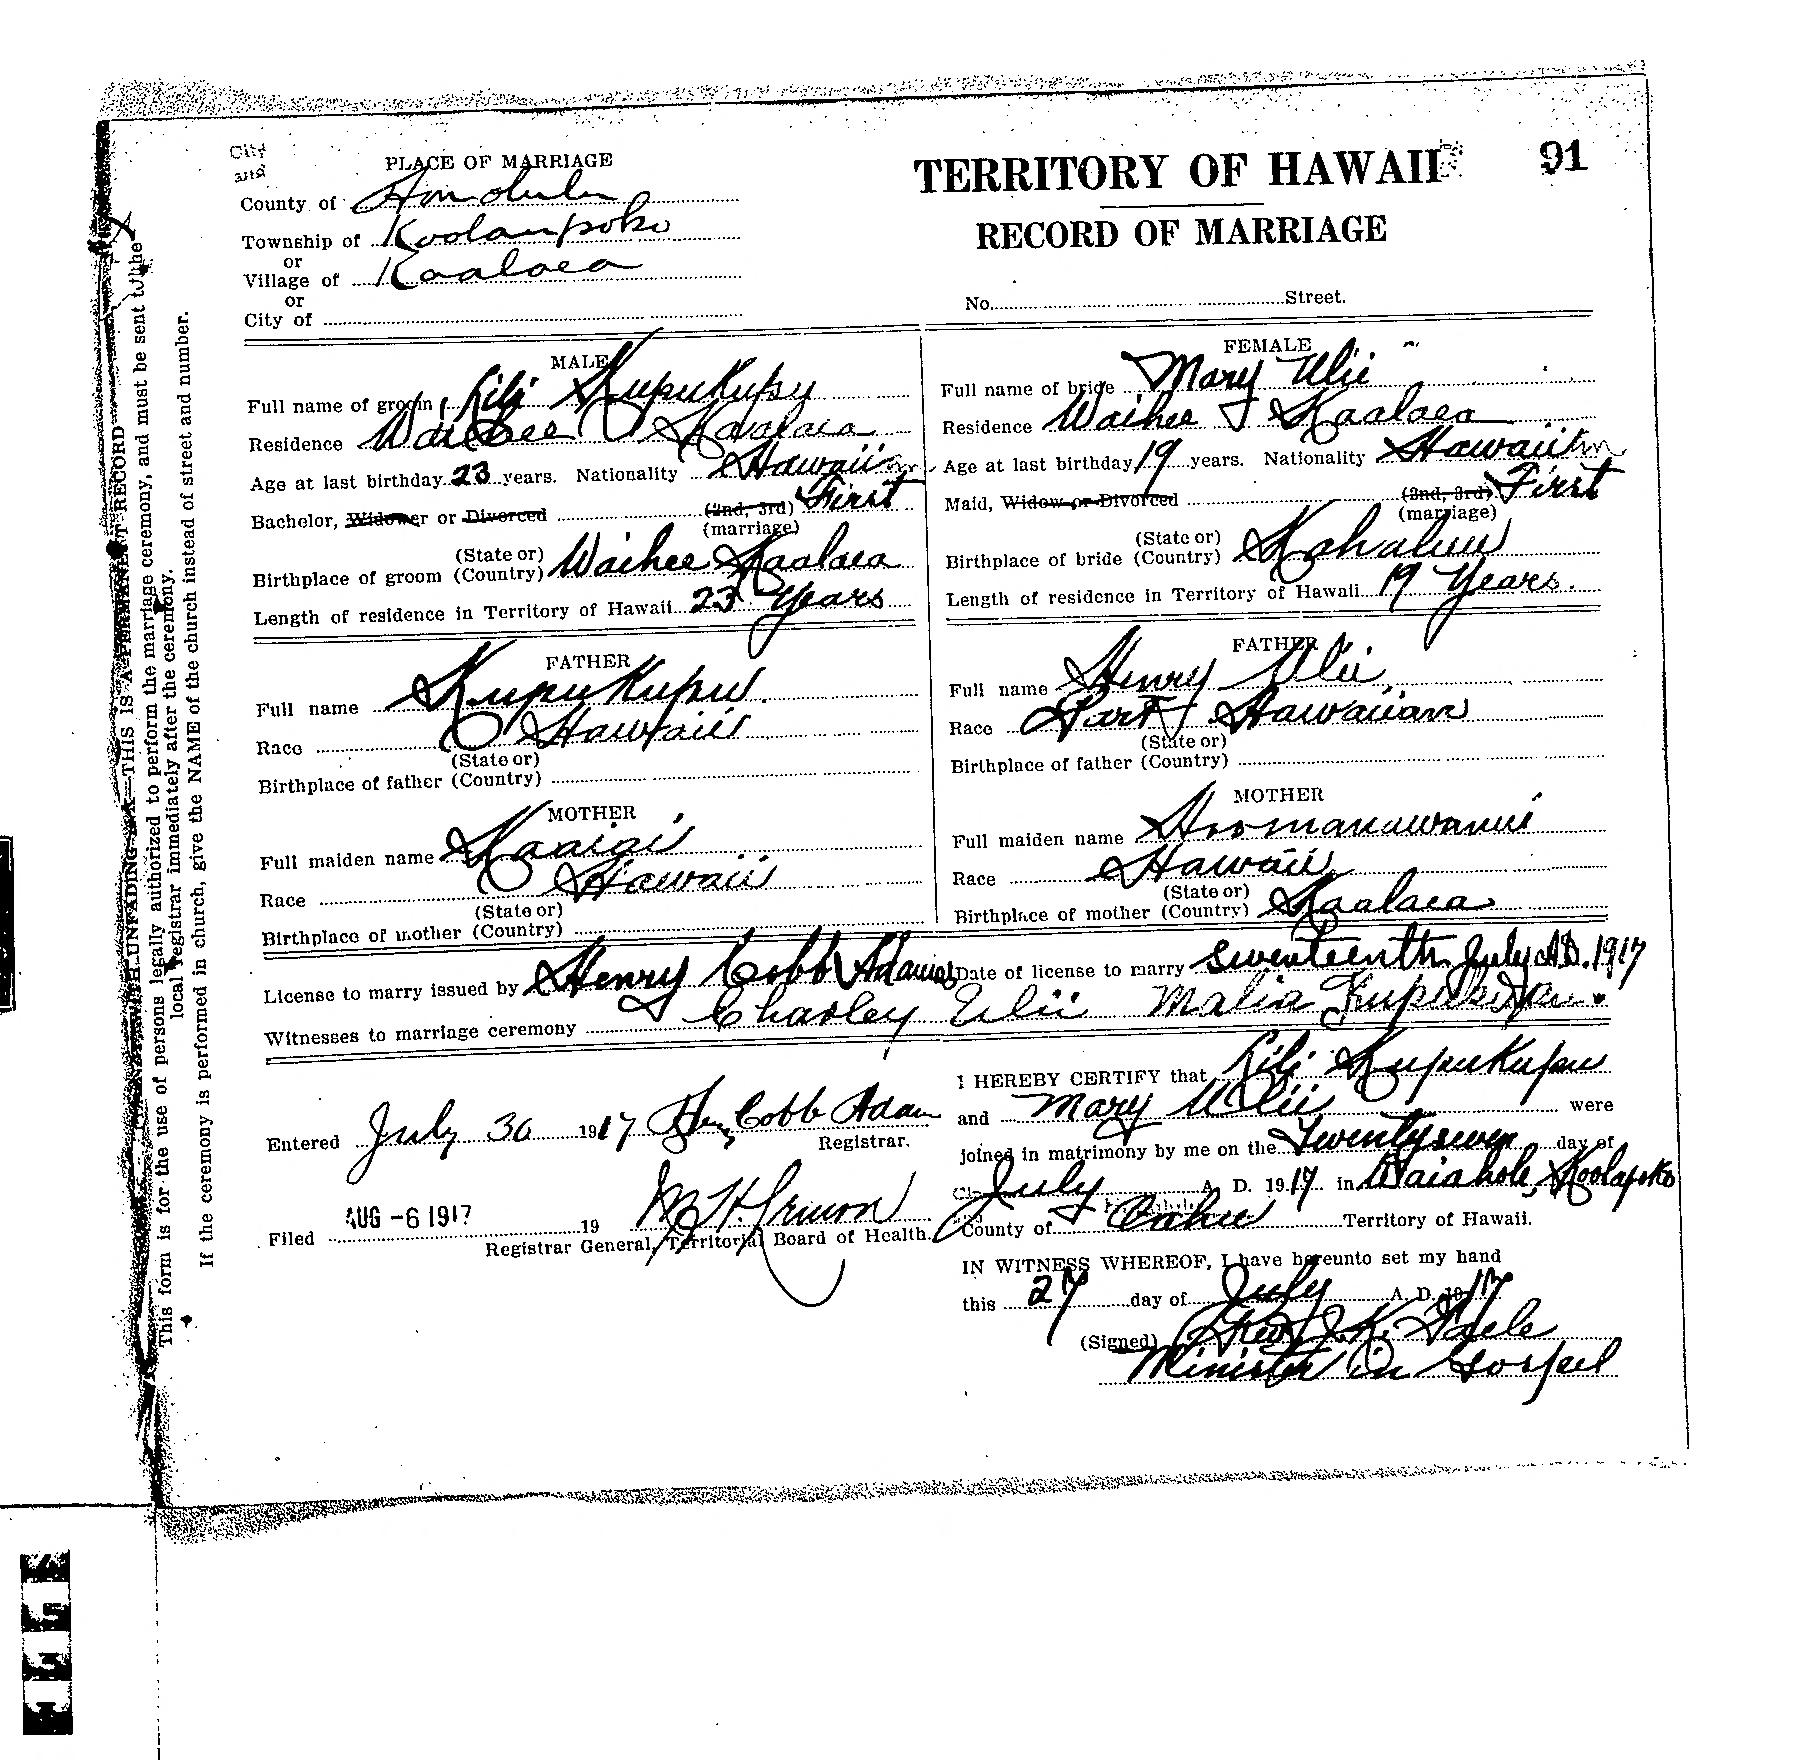 City
and
PLACE OF MARRIAGE
County of Honolulu
Township of Koolaupoko
or
Village of Kaalaea
or
City of
TERRITORY OF HAWAII
91
RECORD OF MARRIAGE
No. Street.
MALE
Full name of groom Lili Kupukupu
Residence Waihee Kaalaea
Age at last birthday 23 years. Nationality Hawaiian
Bachelor, Widower or Divorced (2nd, 3rd) First
(marriage)
(State or)
Birthplace of groom (Country) Waihee Kaalaea
Length of residence in Territory of Hawaii 23 Years
FEMALE
Full name of bride Mary Ulii
Residence Waihee Kaalaea
Age at last birthday 19 years. Nationality Hawaiian
Maid, Widow or Divorced (2nd, 3rd) First
(marriage)
(State or)
Birthplace of bride (Country) Kahaluu
Length of residence in Territory of Hawaii 19 Years.
FATHER
Full name Kupukupu
Race Hawaii
(State or)
Birthplace of father (Country)
MOTHER
Full maiden name Kaaiai
Race Hawaii
(State or)
Birthplace of mother (Country)
FATHER
Full name Henry Ulii
Race Part Hawaiian
(State or)
Birthplace of father (Country)
MOTHER
Full maiden name Hoomanawanui
Race Hawaii
(State or)
Birthplace of mother (Country) Kaalaea
License to marry issued by Henry Cobb Adams Date of license to marry seventeenth July A.D. 1917
Witnesses to marriage ceremony Charley Ulii Malia Kupukupu.
Entered July 30 1917 Hen Cobb Adam
Registrar.
Filed AUG -6 1917 19
Registrar General, Territorial Board of Health.
I HEREBY CERTIFY that Lili Kupukupu
and Mary Ulii were
joined in matrimony by me on the Twentyseven day of
July A. D. 1917 in Waiahole, Koolapoko
County of Oahu Territory of Hawaii.
IN WITNESS WHEREOF, I have hereunto set my hand
this 27 day of July A. D. 1917
(Signed) Rev. J. K. Paele
Minister in Gospel
WITH UNFADING INK—THIS IS A PERMANENT RECORD
This form is for the use of persons legally authorized to perform the marriage ceremony, and must be sent to the
local registrar immediately after the ceremony.
If the ceremony is performed in church, give the NAME of the church instead of street and number.